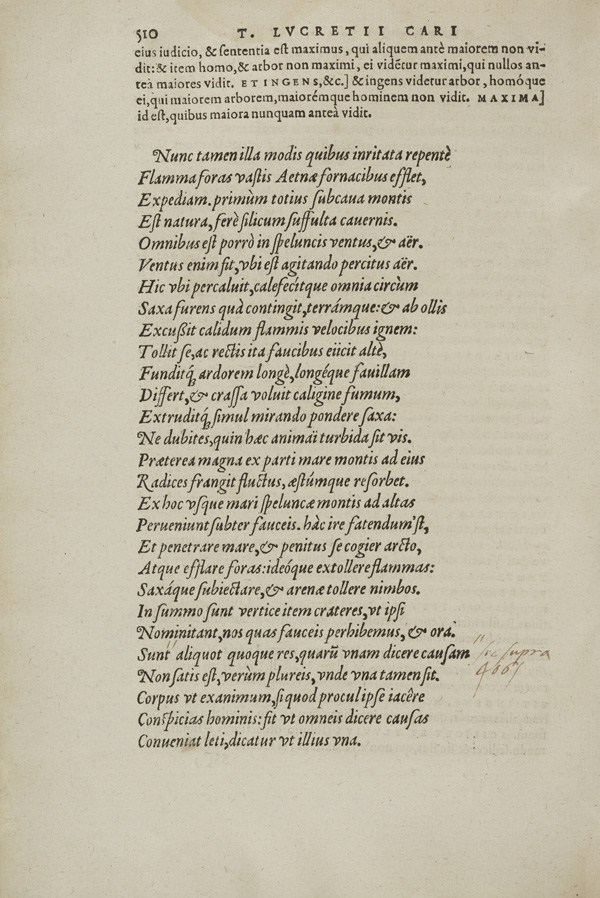 510 T. LVCRETII CARI
eius iudicio, & sententia est maximus, qui aliquem antè maiorem non vi-
dit: & item homo, & arbor non maximi, ei vidētur maximi, qui nullos an-
teà maiores vidit. ET INGENS, &c.] & ingens videtur arbor, homóque
ei, qui maiorem arborem, maiorémque hominem non vidit. MAXIMA]
id est, quibus maiora nunquam anteà vidit.
Nunc tamen illa modis quibus inritata repentè
Flamma foras vastis Aetnæ fornacibus efflet,
Expediam. primùm totius subcaua montis
Est natura, ferè silicum suffulta cauernis.
Omnibus est porrò in speluncis ventus, & aër.
Ventus enim fit, vbi est agitando percitus aër.
Hic vbi percaluit, calefecítque omnia circùm
Saxa furens quà contingit, terrámque: & ab ollis
Excußit calidum flammis velocibus ignem:
Tollit se, ac rectis ita faucibus eiicit altè,
Funditq́; ardorem longè, longéque fauillam
Differt, & crassa voluit caligine fumum,
Extruditq́; simul mirando pondere saxa:
Ne dubites, quin hæc animaï turbida sit vis.
Præterea magna ex parti mare montis ad eius
Radices frangit fluctus, æstúmque resorbet.
Ex hoc vsque mari speluncæ montis ad altas
Perueniunt subter fauceis. hàc ire fatendum'st,
Et penetrare mare, & penitus se cogier arcto,
Atque efflare foras: ideóque extollere flammas:
Saxáque subiectare, & arenæ tollere nimbos.
In summo sunt vertice item crateres, vt ipsi
Nominitant, nos quas fauceis perhibemus, & ora.
Sunt aliquot quoque res, quarū vnam dicere causam
Non satis est, verùm plureis, vnde vna tamen sit.
Corpus vt exanimum, si quod procul ipse iacêre
Conspicias hominis: fit vt omneis dicere causas
Conueniat leti, dicatur vt illius vna.
supra